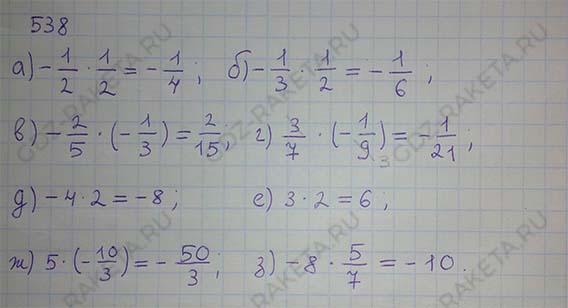 538
а) -1/2 · 1/2 = -1/4 ; б) -1/3 · 1/2 = -1/6 ;
в) -2/5 · (-1/3) = 2/15 ; г) 3/7 · (-1/9 3) = -1/21 ;
д) -4 · 2 = -8 ; е) 3 · 2 = 6 ;
ж) 5 · (-10/3) = -50/3 ; з) -8 · 5/7 = -10 .
GDZ-RAKETA.RU